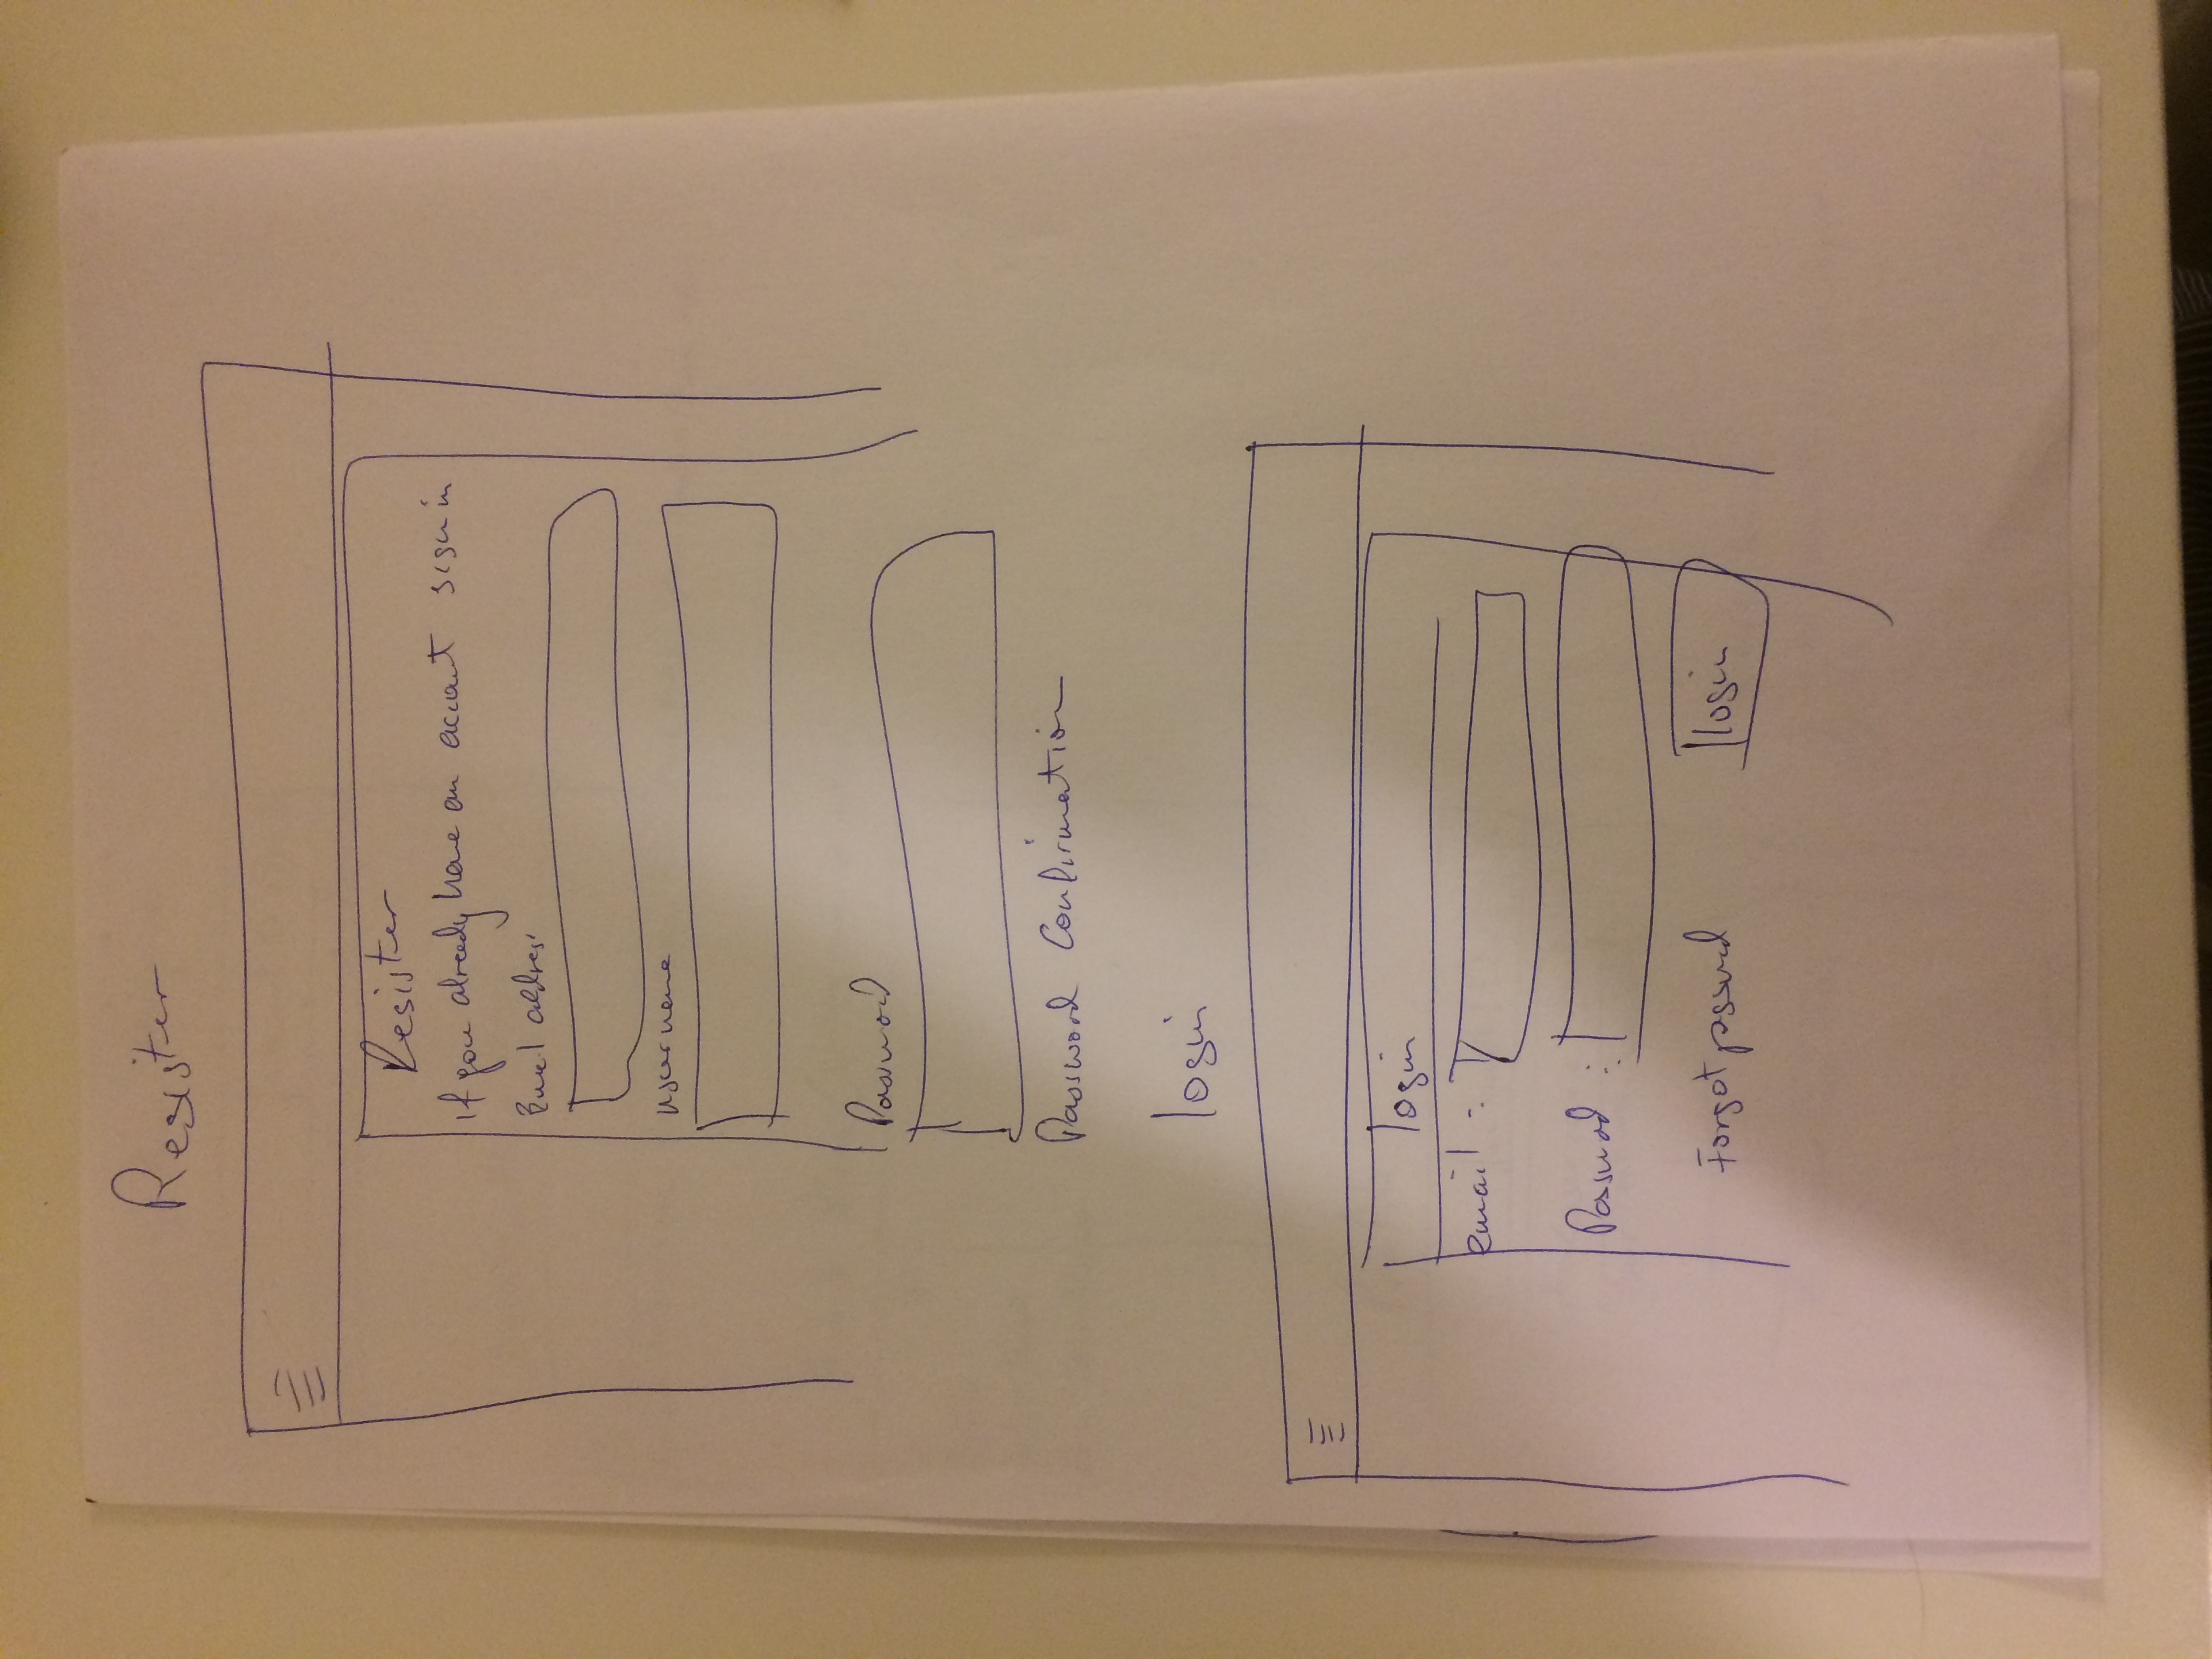 Register
Register
if you already have an account sign in
Email address
username
Password
Password Confirmation
login
login
email :
Password :
Forgot password
login